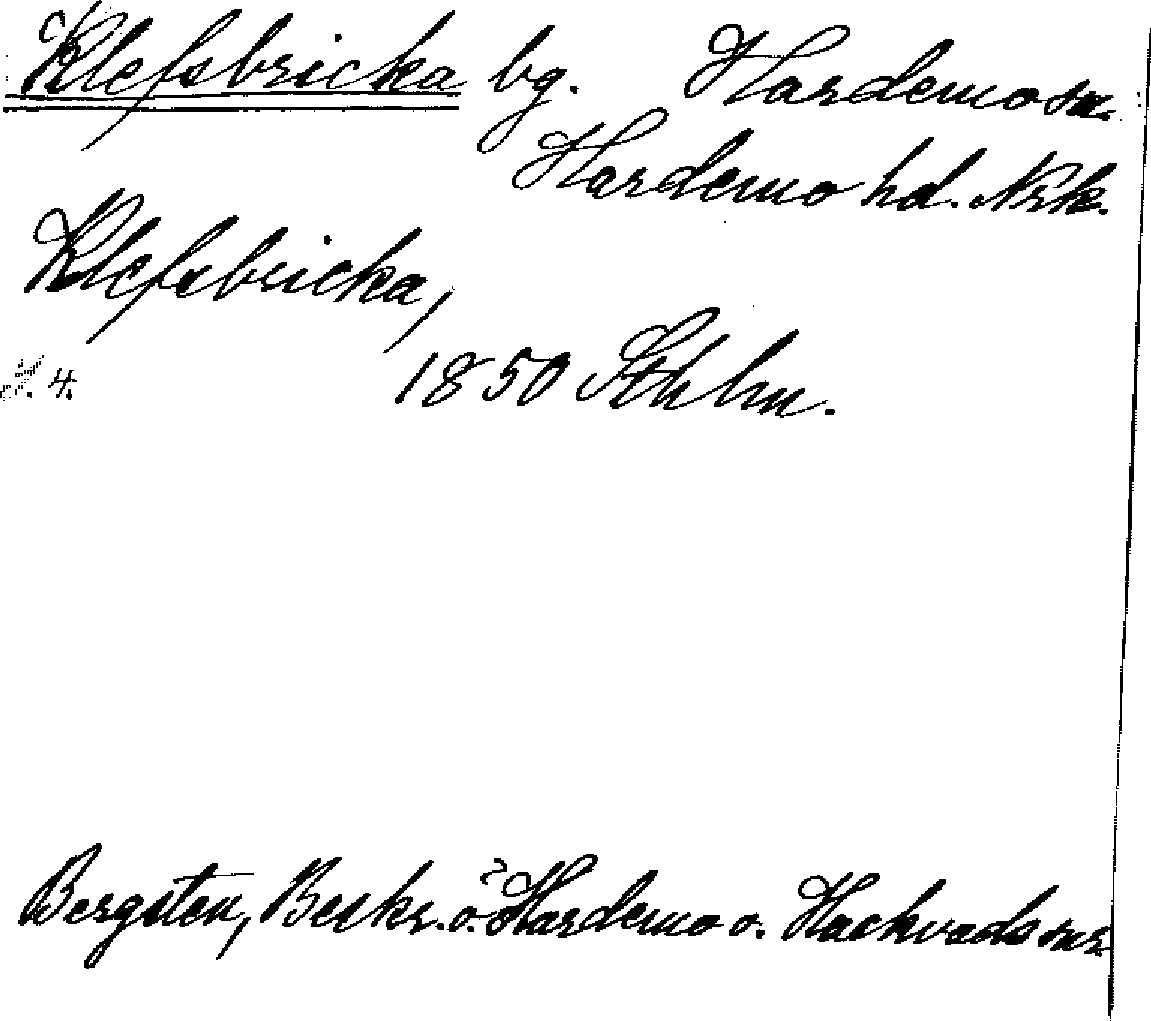 Klefsbricka bg. Hardemo sn.
Hardemo hd. Nrk.
Klefsbricka,
s. 4. 1850 Sthlm.
Bergsten, Beskr. ö. Hardemo o. Hackvads snr